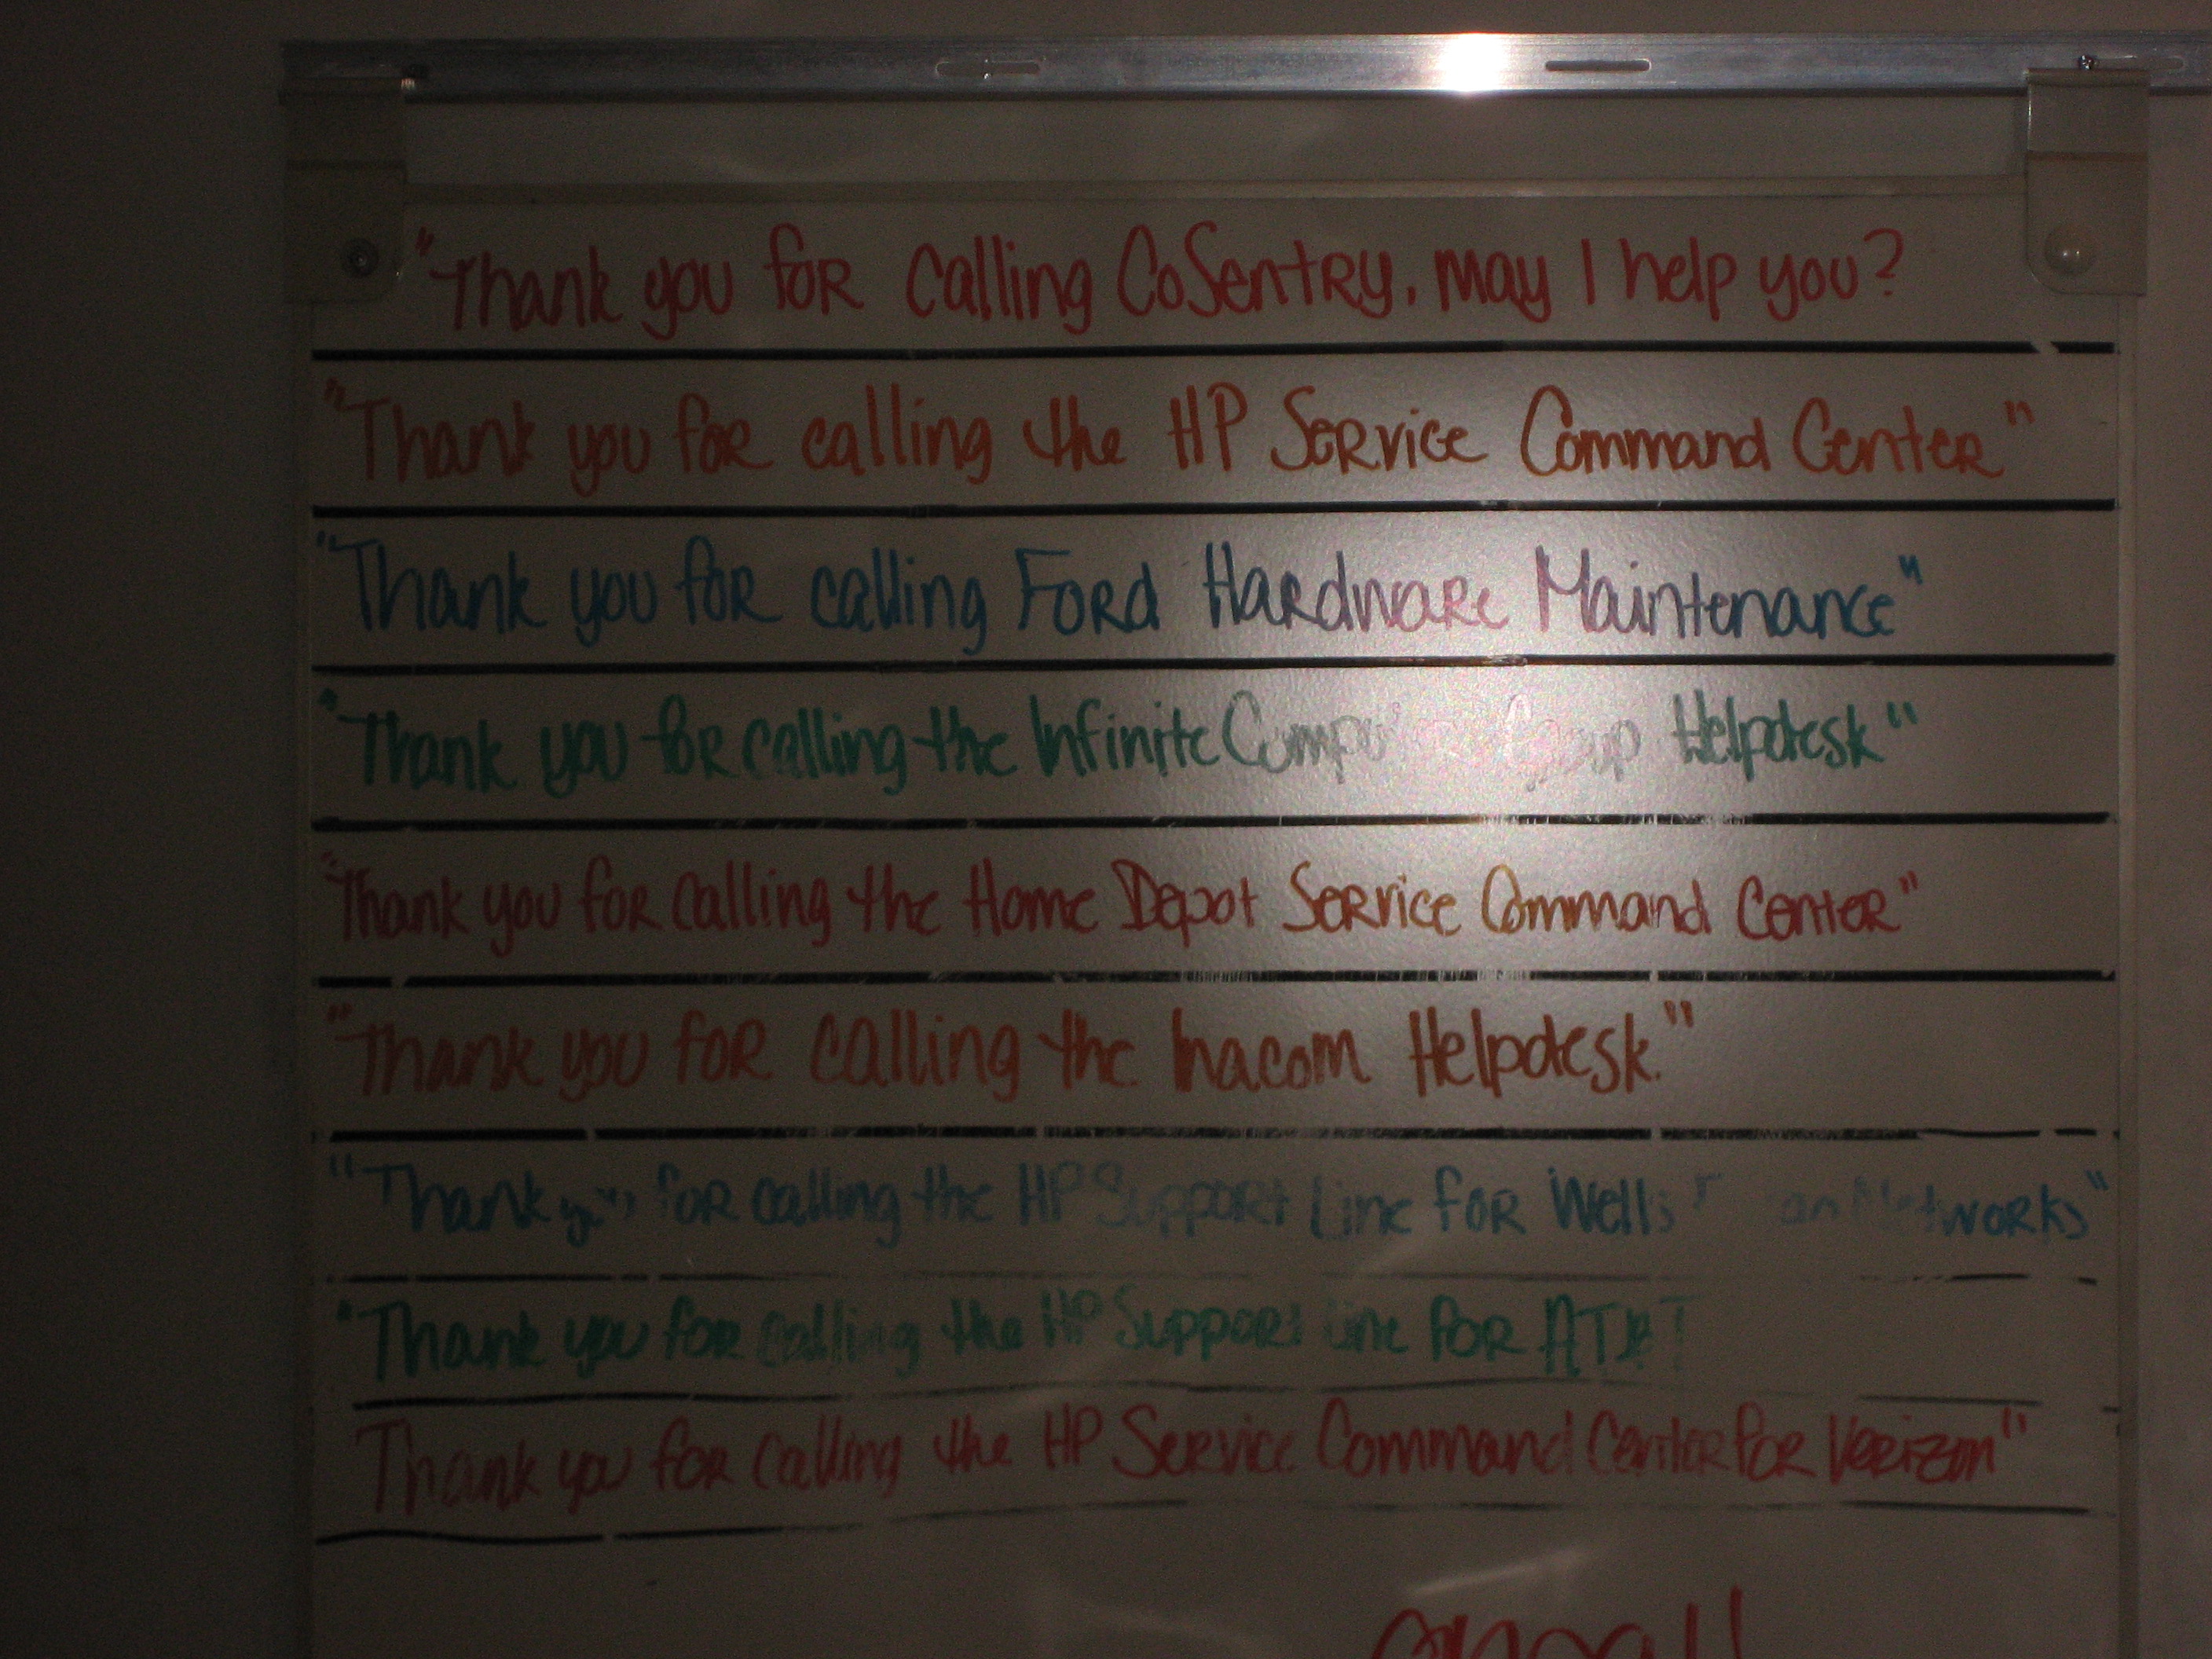 "Thank you for calling CoSentry, may I help you?
"Thank you for calling the HP Service Command Center"
"Thank you for calling Ford Hardware Maintenance"
"Thank you for calling the Infinite Group Helpdesk"
"Thank you for calling the Home Depot Service Command Center"
"Thank you for calling the Inacom Helpdesk."
"Thank you for calling the HP Support Line for Wells Networks"
"Thank you for calling the HP Support Line for AT&T
Thank you for calling the HP Service Command Center for Verizon"